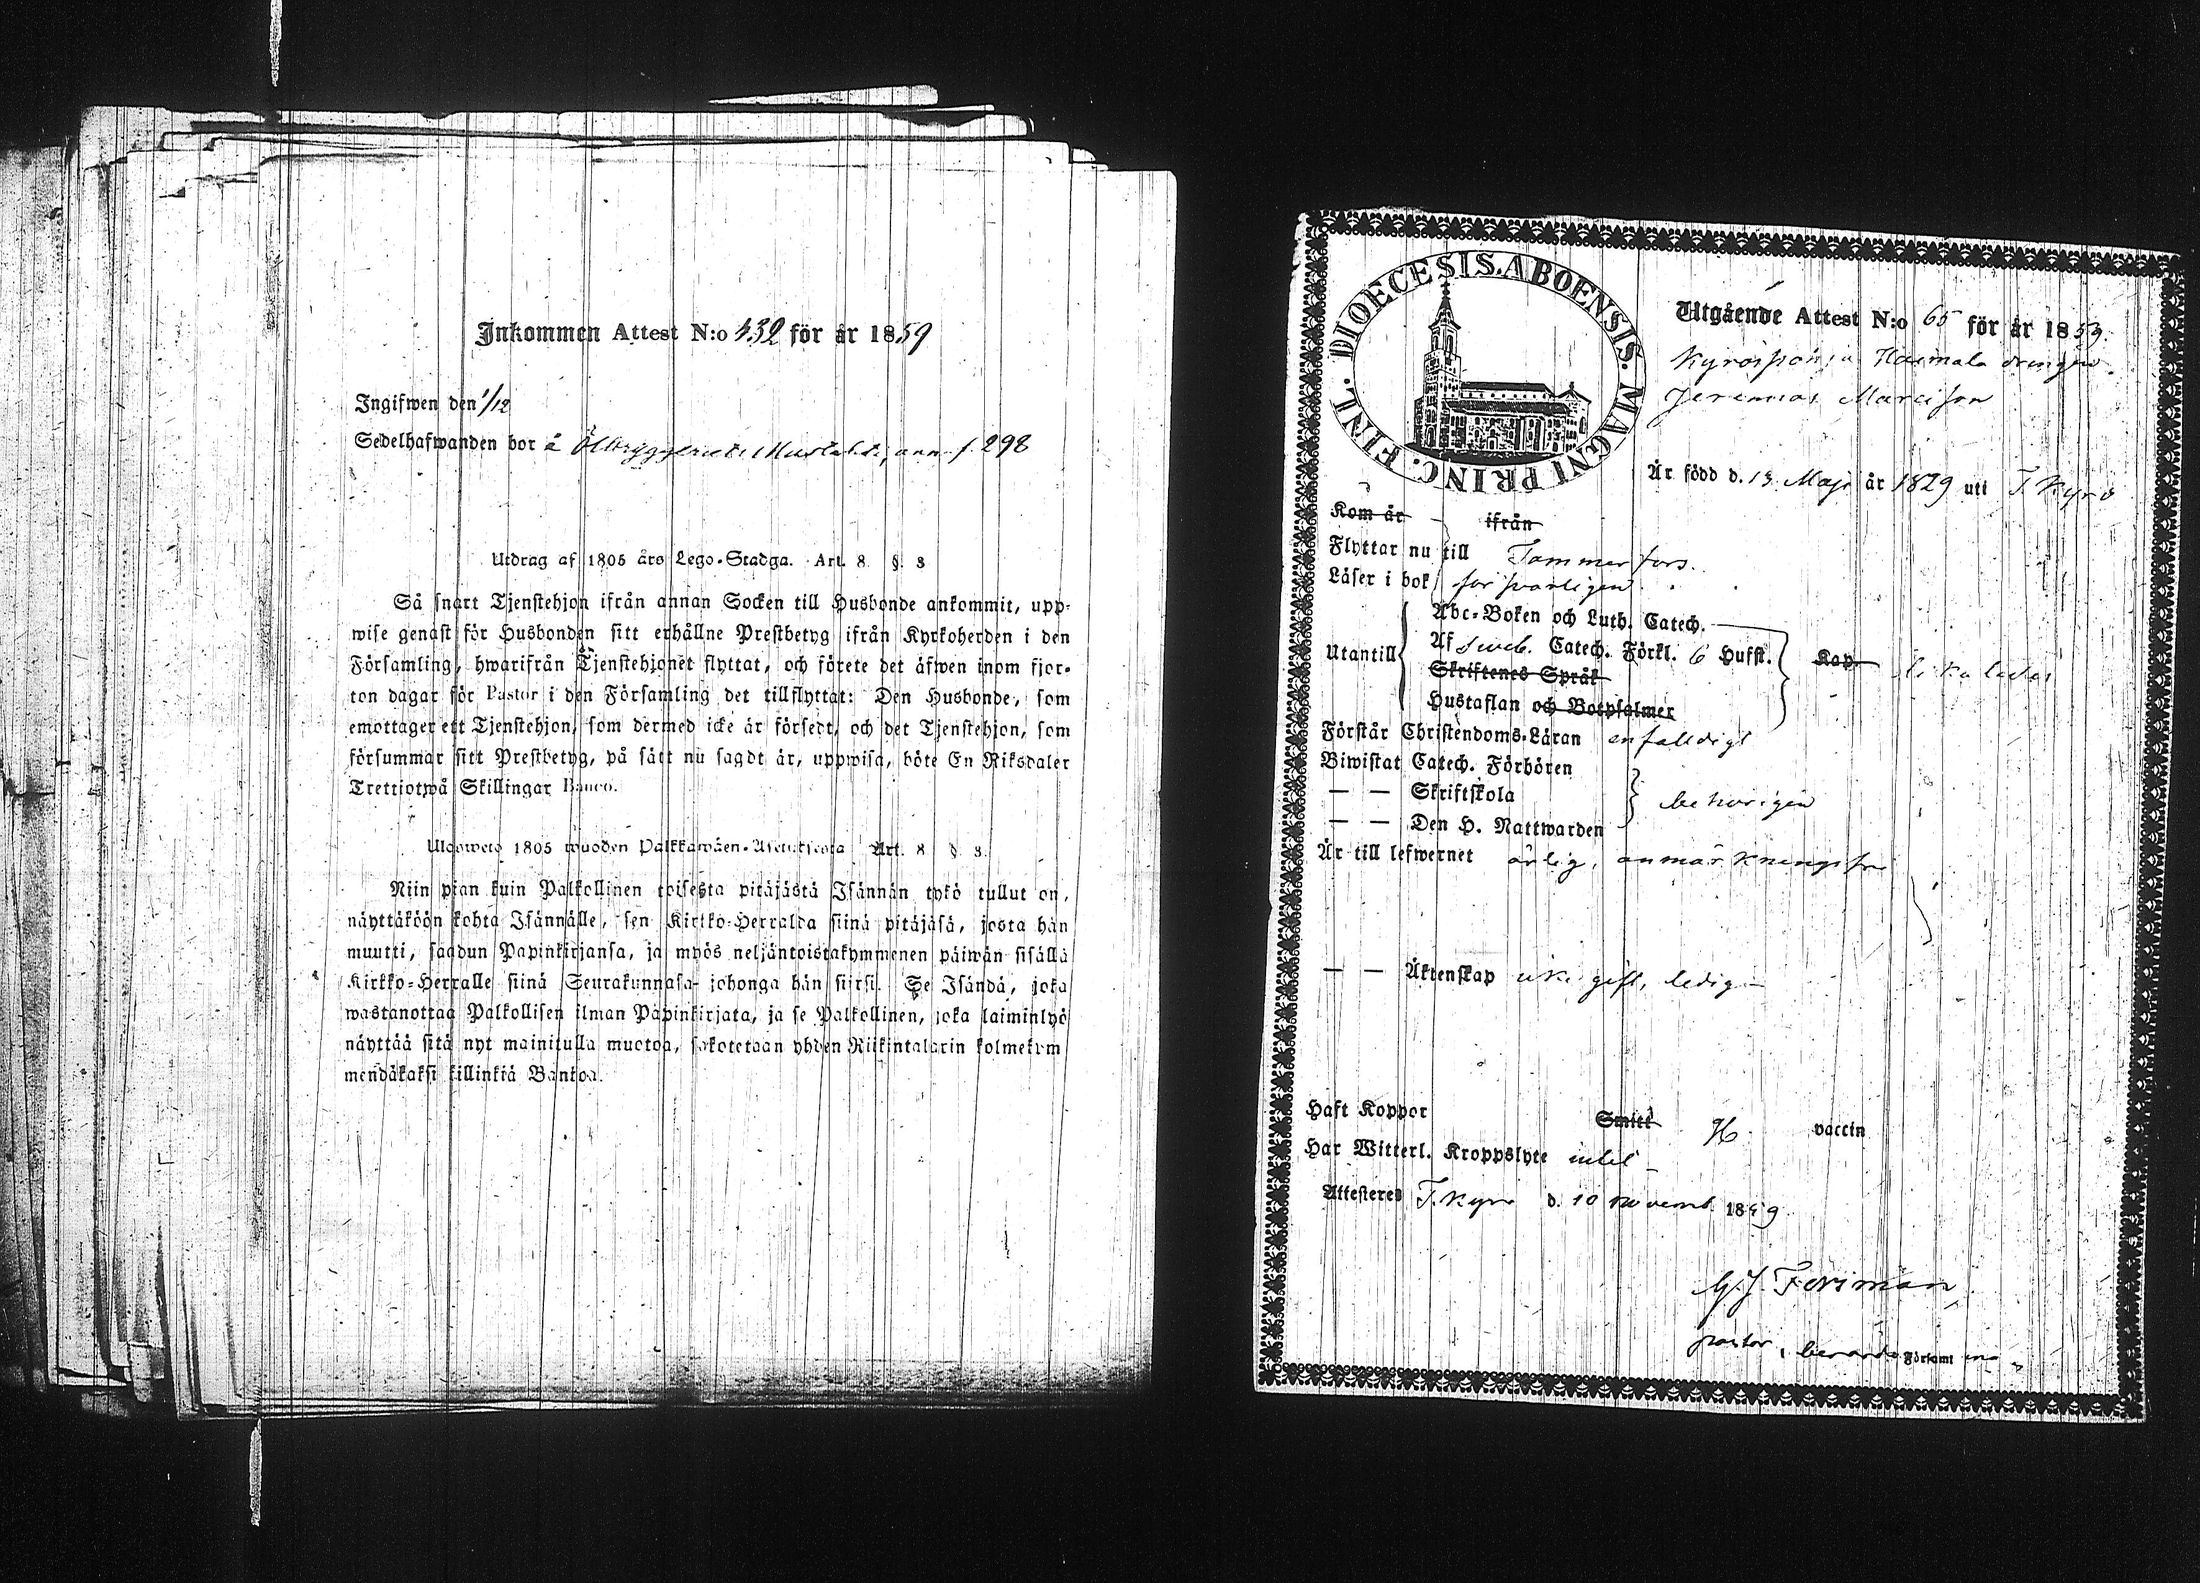 Inkommen Attest N:o 432 för år 1859
Ingifwen den 1/12
Sedelhafwanden bor å Ölbryggeriet, f. 298
Utdrag af 1805 års Lego-Stadga. Art. 8 §. 3
Så snart Tjenstehjon ifrån annan Socken till Husbonde ankommit, upp-
wise genast för Husbonden sitt erhållne Prestbetyg ifrån Kyrkoherden i den
Församling, hwarifrån Tjenstehjonet flyttat, och förete det äfwen inom fjor-
ton dagar för Pastor i den Församling det tillflyttat: Den Husbonde, som
emottager ett Tjenstehjon, som dermed icke är försedt, och det Tjenstehjon, som
försummar sitt Prestbetyg, på sätt nu sagdt är, uppwisa, böte En Riksdaler
Trettiotwå Skillingar Banco.
1805 wuoden Palkkawäen-Asetuksesta Art. 8 §. 3.
Niin pian kuin Palkollinen toisesta pitäjästä Isännän tykö tullut on,
näyttäköön kohta Isännälle, sen Kirkko-Herralda siinä pitäjäsä, josta hän
muutti, saadun Papinkirjansa, ja myös neljäntoistakymmenen päiwän sisällä
Kirkko-Herralle siinä Seurakunnasa johonga hän siirsi. Se Isändä, joka
wastanottaa Palkollisen ilman Papinkirjata, ja se Palkollinen, joka laiminlyö
näyttää sitä nyt mainitulla muotoa, sakotetaan yhden Riikintalarin kolmekym
mendäkaksi killinkiä Bankoa.
DIOECESIS. ABOENSIS. MAGNI PRINC. FINL.
Utgående Attest N:o 65 för år 1859.
Kyröspohja Haimala drengen
Jeremias Marcisson
Är född d. 13 Maji år 1829 uti T. Kyro
Kom år ifrån
Flyttar nu till Tammerfors.
Läser i bok försvarligen
Abc-Boken och Luth. Catech.
Utantill Af Sweb. Catech. Förkl. 6 Hufst. Kap. likaledes
Skriftenes Språk
Hustaflan och Botpsalmer
Förstår Christendoms-Läran enfaldigt
Biwistat Catech. Förhören
— — Skriftskola behörigen
— — Den H. Nattwarden
Är till lefwernet ärlig, anmärkningsfri
— — Äktenskap icke gift, ledig
Haft Koppor Smitt vaccin
Har Witterl. Kroppslyte intet
Attesteres T. Kyro d. 10 Novemb. 1859
G. J. Forsman,
pastor, Församl